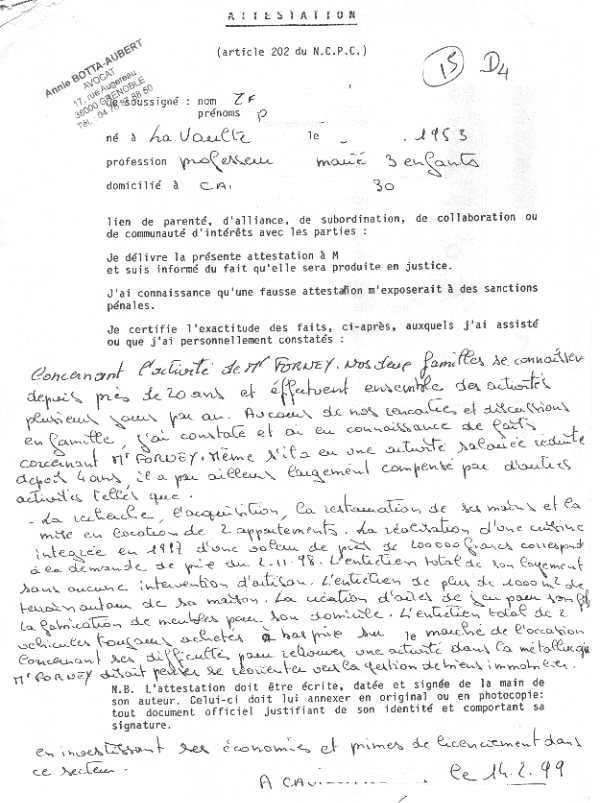 ATTESTATION
(article 202 du N.C.P.C.)
15 D4
Annie BOTTA-AUBERT
AVOCAT
17, rue Augereau
38000 GRENOBLE
Tél. 04 76
Je soussigné : nom ZF
prénoms P
né à La Voulte le . 1953
profession professeur marié 3 enfants
domicilié à C.A. 30
lien de parenté, d'alliance, de subordination, de collaboration ou
de communauté d'intérêts avec les parties :
Je délivre la présente attestation à M
et suis informé du fait qu'elle sera produite en justice.
J'ai connaissance qu'une fausse attestation m'exposerait à des sanctions
pénales.
Je certifie l'exactitude des faits, ci-après, auxquels j'ai assisté
ou que j'ai personnellement constatés :
Concernant l'activité de Mr FORNEY. Nos deux familles se connaissent
depuis près de 20 ans et effectuent ensemble des activités
plusieurs jours par an. Au cours de nos rencontres et discussions
en famille, j'ai constaté et ai eu connaissance de faits
concernant Mr FORNEY. Même s'il a eu une activité salariée réduite
depuis 4 ans, il a par ailleurs largement compensé par d'autres
activités telles que.
- La recherche, l'acquisition, la restauration de ses mains et la
mise en location de 2 appartements. La réalisation d'une cuisine
integrée en 1997 d'une valeur de près de 100000 francs correspond
à la demande de prix du 2.11.98. L'entretien total de son logement
sans aucune intervention d'artisan. L'entretien de plus de 1000 m2 de
terrain autour de sa maison. La création d'aires de jeu pour son fils
La fabrication de meubles pour son domicile. L'entretien total de 2
véhicules toujours achetés à bas prix sur le marché de l'occasion
Concernant ses difficultés pour retrouver une activité dans la métallurgie
Mr FORNEY disait penser se réorienter vers la gestion de biens immobiliers.
N.B. L'attestation doit être écrite, datée et signée de la main de
son auteur. Celui-ci doit lui annexer en original ou en photocopie:
tout document officiel justifiant de son identité et comportant sa
signature.
en investissant ses économies et primes de licenciement dans
ce secteur.
A CAV............ le 14.2.99